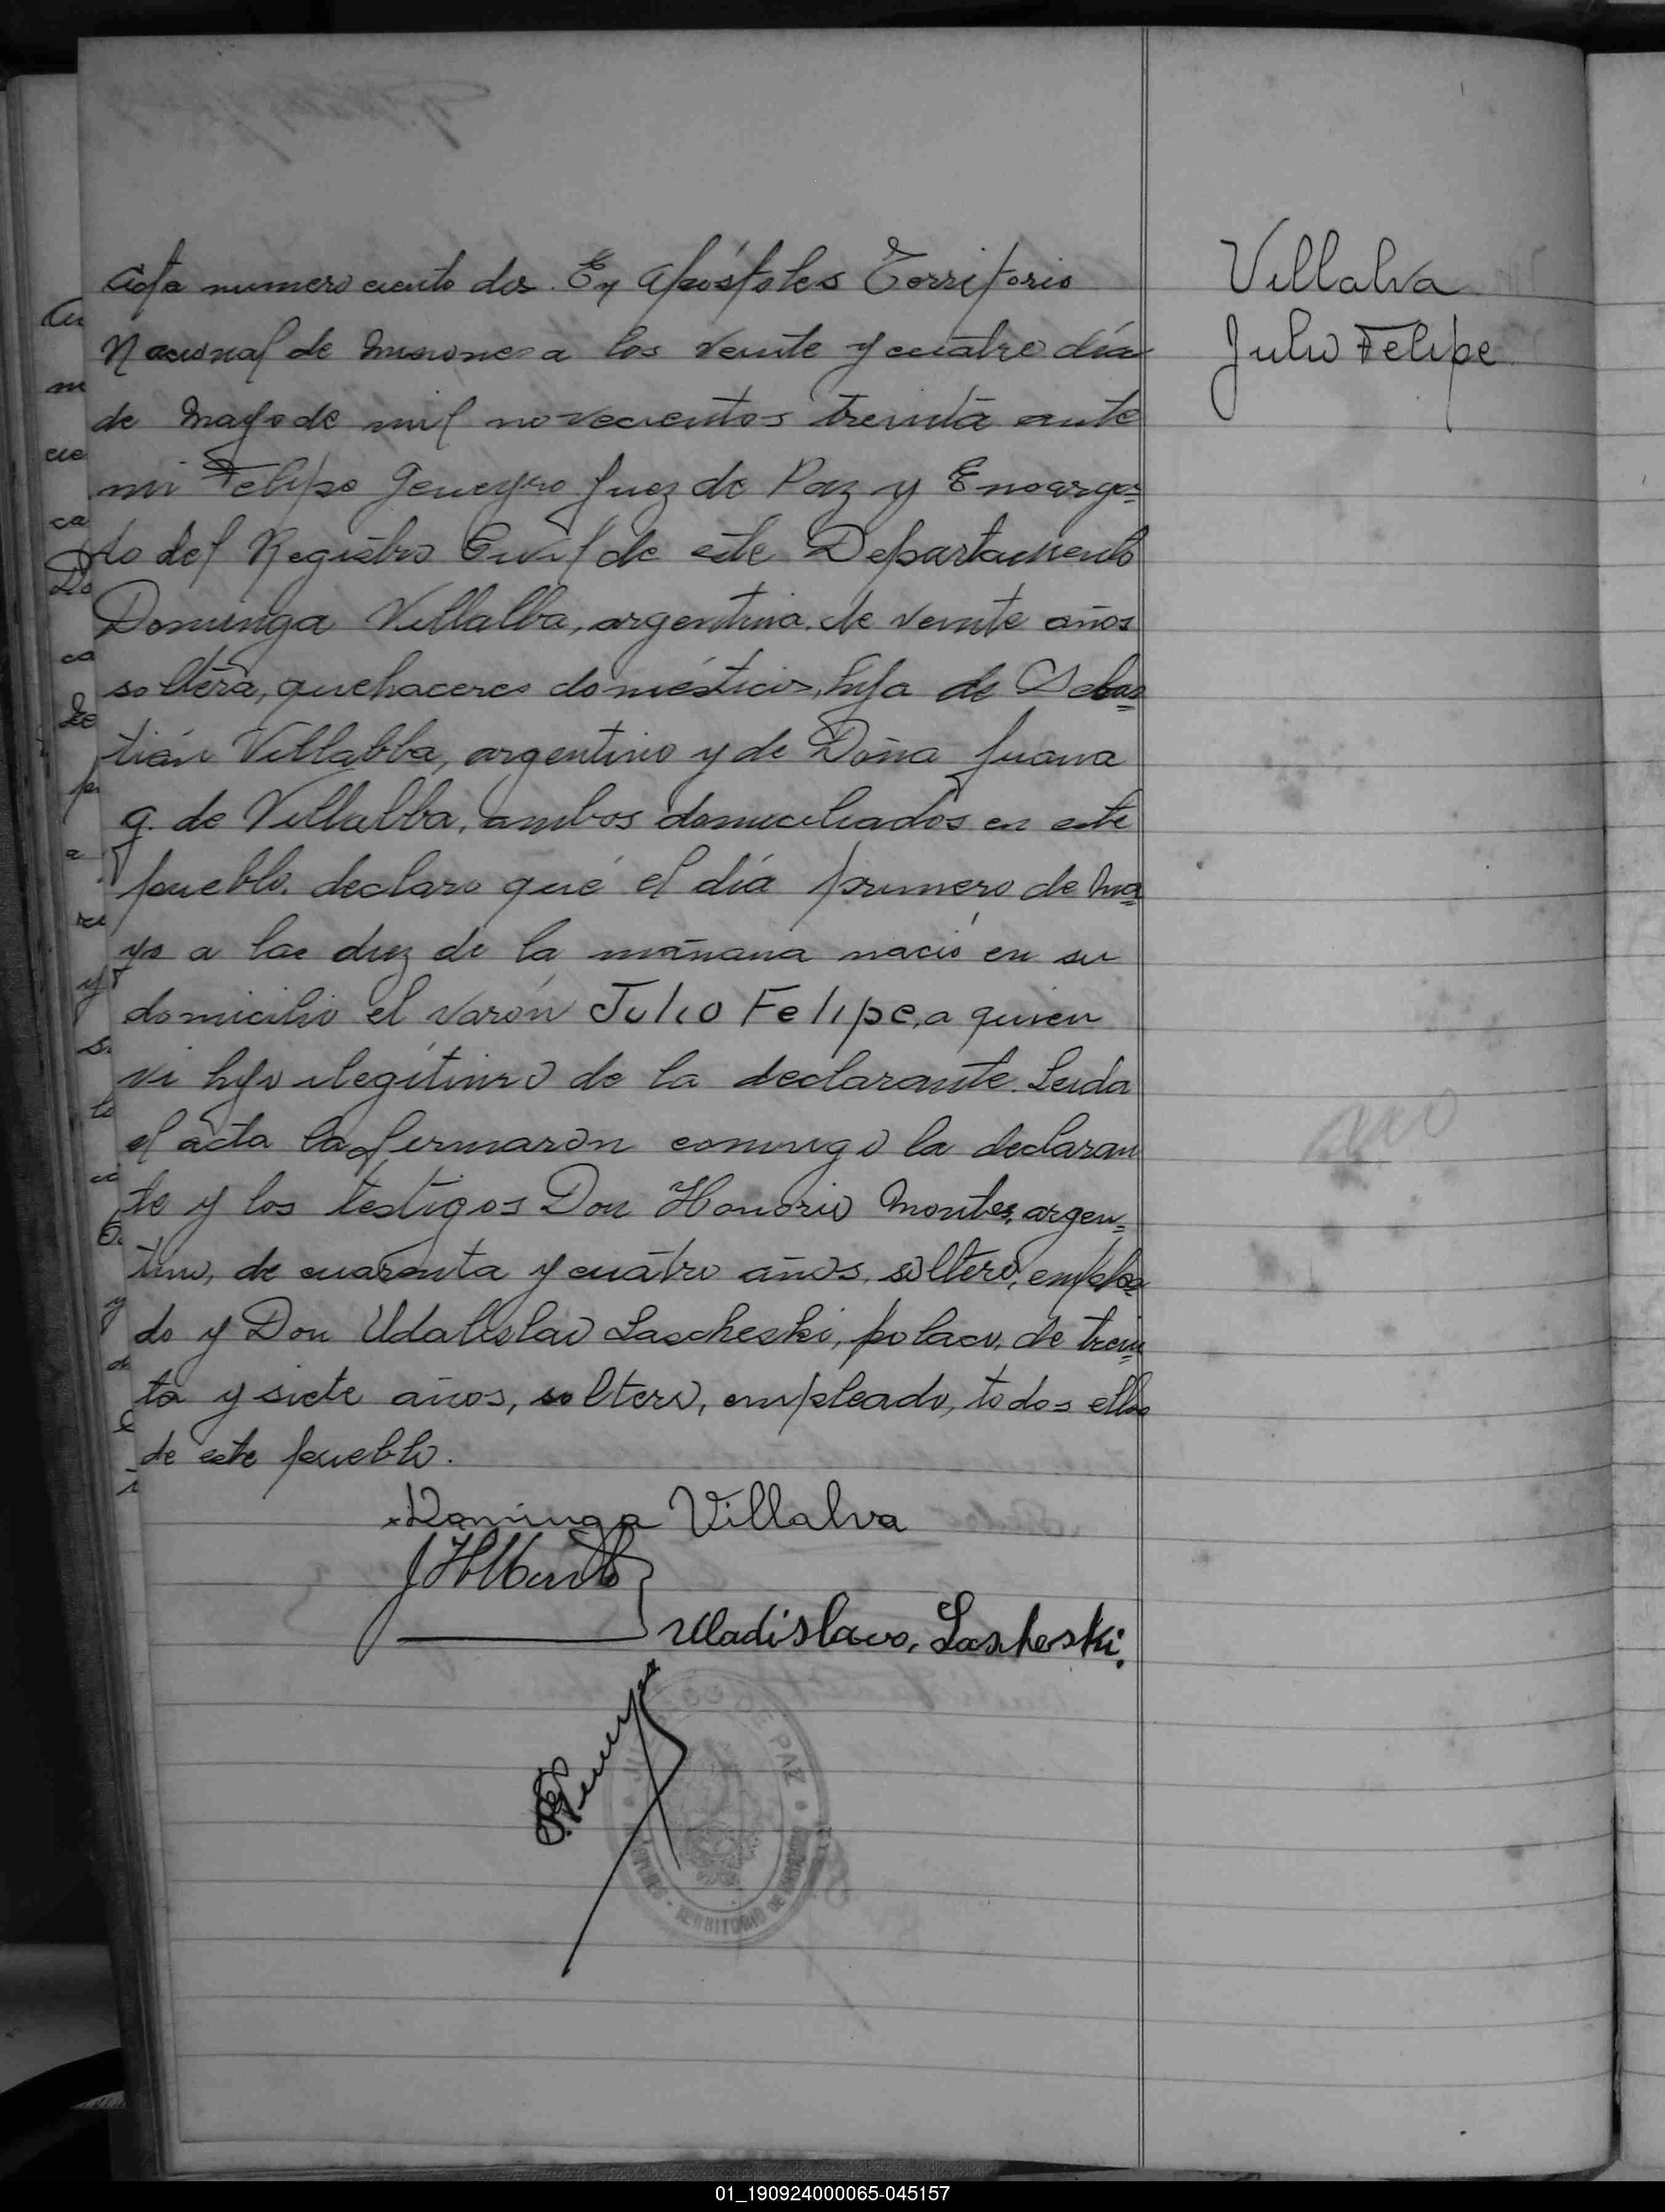 Acta numero ciento dos. En Apóstoles Territorio
Nacional de Misiones a los veinte y cuatro dias
de Mayo de mil novecientos treinta ante
mi Felipe Geneyro Juez de Paz y Encarga=
do del Registro Civil de este Departamento
Dominga Villalba, argentina, de veinte años
soltera, quehaceres domésticos, hija de Sebas=
tián Villalba, argentino y de Doña Juana
G. de Villalba, ambos domiciliados en este
pueblo, declaro que el día primero de Ma=
yo a las diez de la mañana nació en su
domicilio el varón Julio Felipe, a quien
vi hijo ilegítimo de la declarante. Leida
el acta la firmaron conmigo la declaran
te y los testigos Don Honorio Montes, argen=
tino, de cuarenta y cuatro años, soltero, emplea=
do y Don Udalislao Lascheski, polaco, de trein=
ta y siete años, soltero, empleado, todos ellos
de este pueblo.
Dominga Villalva
Uladislavo, Lasheski.
DE PAZ
TERRITORIO DE MISIONES
Villalva
Julio Felipe
01_190924000065-045157